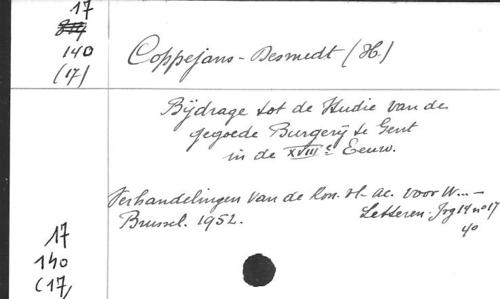 17
140
(17)
Coppejans-Desmedt (H.)
Bijdrage tot de studie van de
gegoede Burgerij te Gent
in de XVIIIe Eeuw.
Verhandelingen van de Kon. Vl. Ac. voor W... –
Letteren. Jrg 14 no 17
Brussel. 1952.
40
17
140
(17,